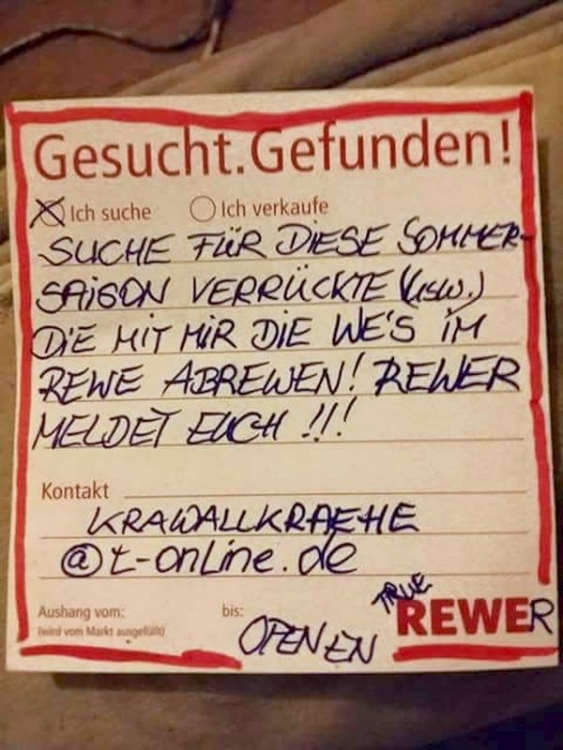 Gesucht.Gefunden!
Ich suche Ich verkaufe
SUCHE FÜR DIESE SOMMER-
SAISON VERRÜCKTE (usw.)
DIE MIT MIR DIE WE'S IM
REWE ABREWEN! REWER
MELDET EUCH !!!
Kontakt
KRAWALLKRAEHE
@t-online.de
Aushang vom: bis:
(wird vom Markt ausgefüllt)
OPEN EN
TRUE
REWER